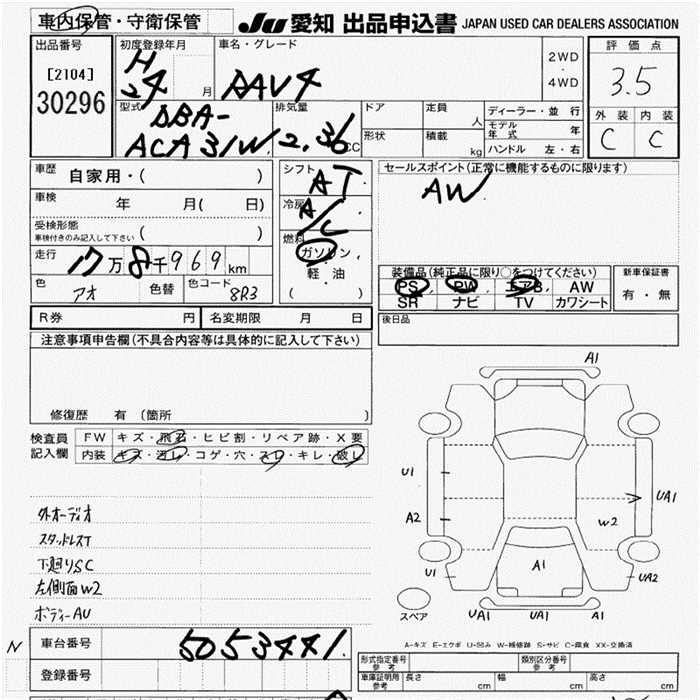 車内保管・守衛保管
JU 愛知 出品申込書 JAPAN USED CAR DEALERS ASSOCIATION
出品番号
[2104]
30296
初度登録年月
H
24 月
車名・グレード
RAV4
2WD
・
4WD
評価点
3.5
外装 内装
C C
型式
DBA-
ACA31W
排気量
2.36 cc
ドア
形状
定員 人
積載 kg
ディーラー・並行
モデル年式 年
ハンドル 左・右
車歴 自家用・( )
車検 年 月( 日)
受検形態
車検付きのみ記入して下さい ( )
走行 17万8千969km
色 アオ 色替 色コード 8R3
シフト AT
冷房 A/C
燃料
ガソリン,
軽・油
( )
セールスポイント(正常に機能するものに限ります)
AW
装備品(純正品に限り○をつけてください)
PS PW エアB, AW
SR ナビ TV カワシート
新車保証書
有・無
R券 円 名変期限 月 日
後日品
注意事項申告欄(不具合内容等は具体的に記入して下さい)
修復歴 有 (箇所 )
検査員
記入欄
FW キズ・飛石・ヒビ割・リペア跡・X要
内装 キズ・汚レ・コゲ・穴・スレ・キレ・破レ
外オーディオ
スタッドレスT
下廻りSC
左側面W2
ボディーAU
A1
U1
A2
U1
UA1
W2
UA2
A1
UA1 UA1 A1
スペア
A-キズ E-エクボ U-凹み W-補修跡 S-サビ C-腐食 XX-交換済
N
車台番号 5053441
登録番号
形式指定番号
参考
類別区分番号
参考
車庫証明用
参考
長さ cm 幅 cm 高さ cm